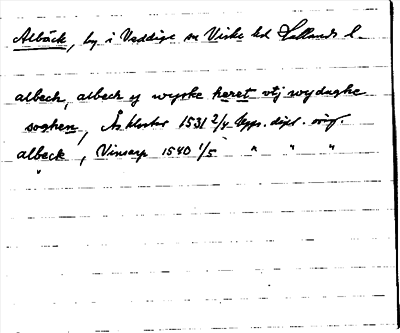 Albäck, by i Veddige sn Viske hd Hallands l.
albech, albech y wyske heret vtj wydughe
soghen, Ås kloster 1531 2/4 Upps. dipl. orig.
albeck, Vinsarp 1540 1/5 " " "
"